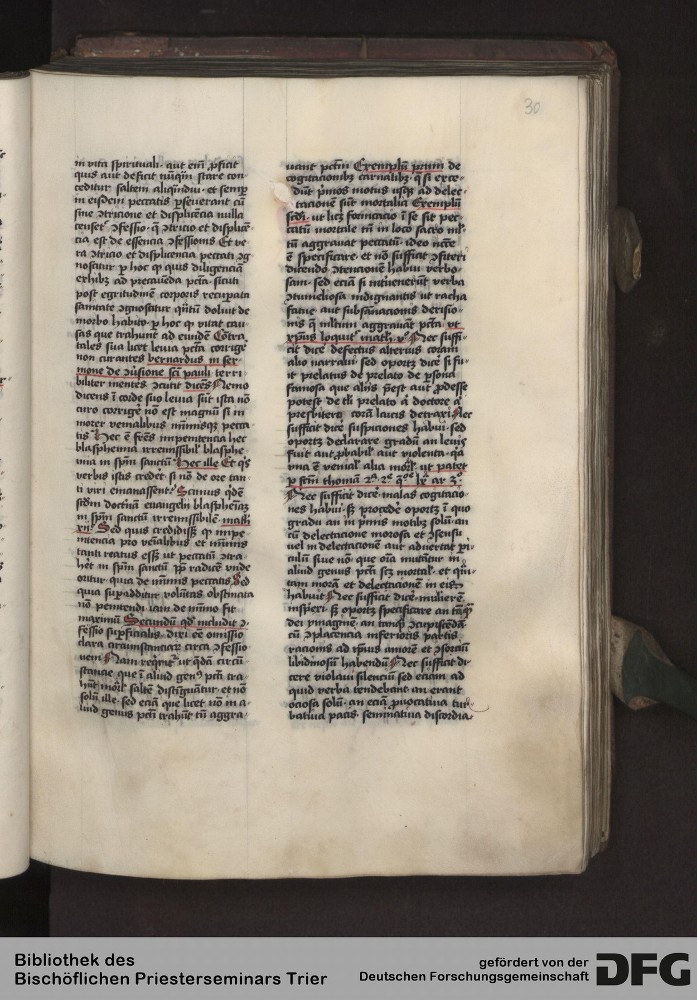 30
in vita spirituali · aut eciā ꝓficit
quis aut deficit nūqȝm stare con-
ceditur saltem aliqȝndiu · et semꝑ
in eisdem peccatis ꝑseuerant cū
sine ꝯtricione et displicēcia nulla
ꝯfessio · qȝ ꝯtricio et displicē-
cia est de essencia ꝯfessionis Et ve-
ra ꝯtricio et displicencia peccati ꝯg-
noscitur ꝑ hoc qȝ quis diligenciā
exhibȝ ad precauēda pctā · sicuti
post egritudinē corporis recuꝑata
sanitate ꝯgnoscitur qȝntū doluit de
morbo habito · ꝑ hoc qȝ vitat cau-
sas que trahunt ad eundē Cōtra
tales sua licet leuia pctā corrige
non curantes bernardus in ser-
mone de ꝯūsione sci pauli terri
biliter inentes ꝯcutit dicēs Nemo
dicens ī corde suo leuia sūt ista nō
curo corrigē nō est magnū si in
moror venialibus minimisqȝ pecca-
tis Hec ē frēs impenitencia hec
blasphemia irremissibil blasphe
mia in spm sanctū Hec ille Et qȝs
verbis istis credēt si nō de ore tan
ti viri emanassent Scimus qȝdē
scdm doctnā euangelii blasphemiā
in spm sanctū irremissibilē math
xii Sed quis credidissȝ qȝ impe-
nitencia pro venialibus et minimis
tanti reatus essȝ ut peccatū ꝯtra-
hēt in spm sanctū pȝ radicē vnde
oritur quia de minimis peccatis Sed
quia suꝑadditur volūtas obstinata
nō penitendi iam de minimo fit
maximū Secundū qd includit ꝯ-
fessio suꝑficialis dixi eē omissio
clara circumstanciarum circa ꝯfessio
nem Nam reqȝritur ut qȝdā circū
stancie que ī aliud genȝ pctī tra-
hūt morl saltē distīguātur · et nō
solū ille · sed eciā que licet nō in a-
liud genus pctī trahūt tn aggra-
uant pctm Exemplū primi de
cogitacionibȝ carnalibȝ qȝ si exce-
dūt pmos motus usqȝ ad delec-
tacionē sūt mortalia Exemplū
scdi · ut licȝ fornicacio ī se sit pec-
catū mortale tn in loco sacro ml-
tū aggrauat peccatū · ideo ncce
ē specificare · et nō sufficit ꝯfiteri
dicendo ꝯtencionē habui verbo-
sam · sed eciā si interuenerūt verba
ꝯtumeliosa indignantis ut racha
fatue aut subsānacionis derisio-
nis qȝ multum aggrauāt pctā · ut
xpus loquitur math v Nec suffi-
cit dicē defectus alterius corā
alio narraui · sed oportȝ dicē si fu-
it prelatus de prelato de ꝑsona
famosa que aliis pest aut ꝓdesse
potest de tli prelato ā doctore ā
presbitero corā laicis detraxi Nec
sufficit dicē suspiciones habui · sed
oportȝ declarare gradū an leuis
fuit aut ꝓbabil aut violenta · qȝ
vna ē venial alia morl · ut patet
ꝑ scm thomā 2a 2e qȝ lx ar 3o
Nec sufficit dicē malas cogitacio-
nes habui · sȝ procedē oportȝ ī quo
gradu an in pmis motibȝ solū · an
cū delectacione morosa et ꝯsensu
vel in delectacionē aut aduertat pi-
culū siue nō · que oīa mutātur in
aliud genus pctī scȝ mortal · et qȝn-
tam morā et delectacionē in eis
habuit Nec sufficit dicē muliere
inspexi · sȝ oportȝ specificare an tāqȝ
dei ymaginē · an tanqȝ ꝯcupiscēdā
cū ꝯplacencia inferioris partis
racionis ad ipius amorē et ꝯsorciū
libidinosū habendū Nec sufficit di
cere violaui silenciū sed eciam ad
quid verba tendebant an erant
ociosa solū · an eciā ꝓuocatiua tur-
batiua pacis · seminatiua discordia
Bibliothek des
Bischöflichen Priesterseminars Trier
gefördert von der
Deutschen Forschungsgemeinschaft
DFG